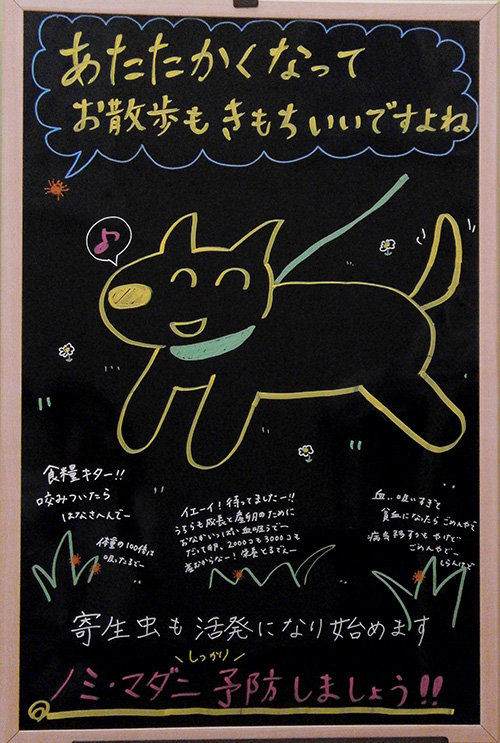 あたたかくなって
お散歩も きもちいいですよね
♪
食糧キター!!
咬みついたら
はなさへんでー
体重の100倍は
吸ったるでー
イエーイ!待ってましたー!!
うちらも成長と産卵のために
おなかいっぱい血吸うでー
だって卵、2000コも3000コも
産むからなー!栄養とるでぇー
血、吸いすぎて
貧血になったらごめんやで
病気移すかも やけど
ごめんやでー
しらんけど
寄生虫も活発になり始めます
しっかり
ノミ・マダニ 予防しましょう!!